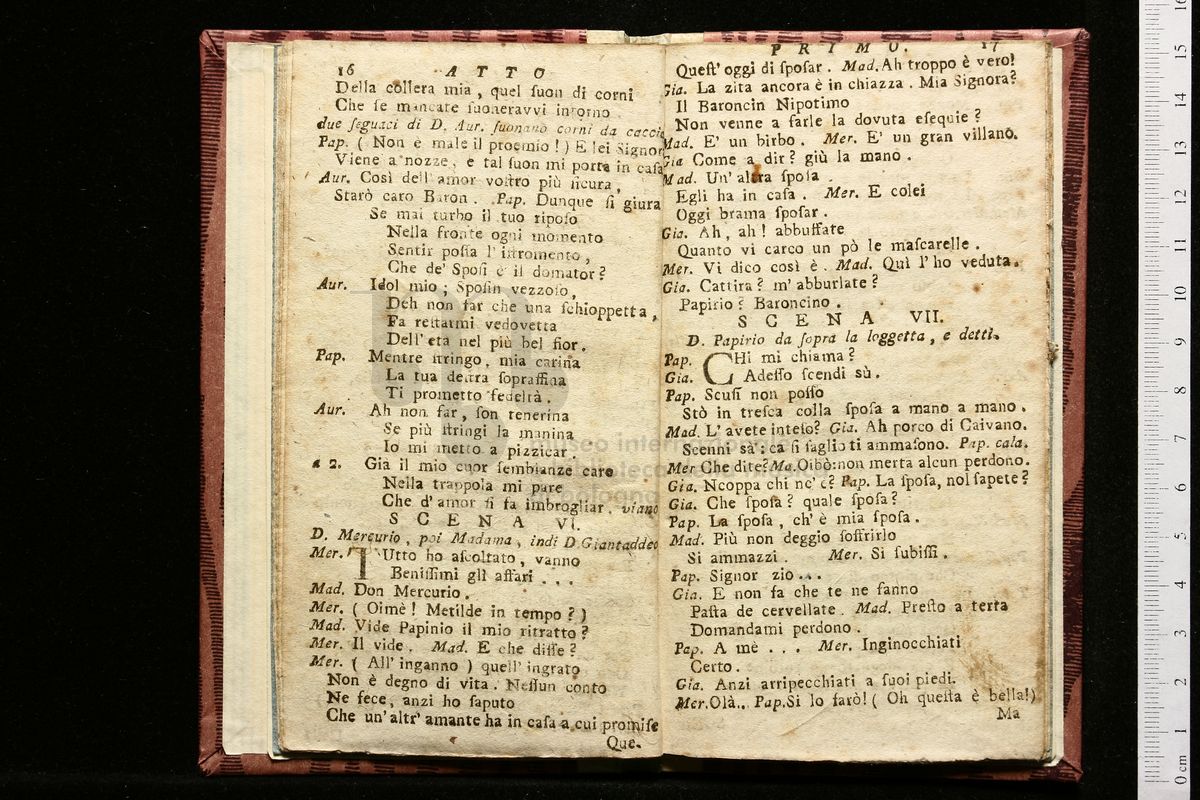 16 ATTO
Della collera mia, quel suon di corni
Che se mancare suoneravvi intorno
due seguaci di D. Aur. suonano corni da caccia
Pap. ( Non è male il proemio! ) E lei Signor
Viene a nozze, e tal suon mi porta in casa
Aur. Così dell' amor vostro più sicura,
Starò caro Baron. Pap. Dunque si giura
Se mai turbo il tuo riposo
Nella fronte ogni momento
Sentir possa l' istromento,
Che de' Sposi è il domator?
Aur. Idol mio; Sposin vezzoso,
Deh non far che una schioppetta,
Fa restarmi vedovetta
Dell' età nel più bel fior.
Pap. Mentre stringo, mia carina
La tua destra sopraffina
Ti prometto fedeltà.
Aur. Ah non far, son tenerina
Se più stringi la manina
Io mi metto a pizzicar.
a 2. Già il mio cuor sembianze care
Nella trappola mi pare
Che d' amor si fa imbrogliar. viano
SCENA VI.
D. Mercurio, poi Madama, indi D. Giantaddeo
Mer. TUtto ho ascoltato, vanno
Benissimi gli affari ...
Mad. Don Mercurio.
Mer. ( Oimè! Metilde in tempo? )
Mad. Vide Papinio il mio ritratto?
Mer. Il vide. Mad. E che disse?
Mer. ( All' inganno ) quell' ingrato
Non è degno di vita. Nessun conto
Ne fece, anzi ho saputo
Che un' altr' amante ha in casa a cui promise
Que.
museo internazionale
PRIMO. 17
Quest' oggi di sposar. Mad. Ah troppo è vero!
Gia. La zita ancora è in chiazza. Mia Signora?
Il Baroncin Nipotimo
Non venne a farle la dovuta esequie?
Mad. E' un birbo. Mer. E' un gran villano.
Gia Come a dir? giù la mano.
Mad. Un' altra sposa
Egli ha in casa. Mer. E colei
Oggi brama sposar.
Gia. Ah, ah! abbuffate
Quanto vi carco un pò le mascarelle.
Mer. Vi dico così è. Mad. Quì l' ho veduta.
Gia. Cattira? m' abburlate?
Papirio? Baroncino.
SCENA VII.
D. Papirio da sopra la loggetta, e detti.
Pap. CHi mi chiama?
Gia. Adesso scendi sù.
Pap. Scusi non posso
Stò in tresca colla sposa a mano a mano.
Mad. L' avete inteso? Gia. Ah porco di Caivano.
Scenni sà: ca si saglio ti ammasono. Pap. cala.
Mer Che dite? Ma. Oibò: non merta alcun perdono.
Gia. Ncoppa chi nc' è? Pap. La sposa, nol sapete?
Gia. Che sposa? quale sposa?
Pap. La sposa, ch' è mia sposa.
Mad. Più non deggio soffrirlo
Si ammazzi. Mer. Si subissi.
Pap. Signor zio...
Gia. E non sa che te ne fanno
Pasta de cervellate. Mad. Presto a terra
Domandami perdono.
Pap. A mè ... Mer. Inginocchiati
Certo.
Gia. Anzi arripecchiati a suoi piedi.
Mer. Olà.. Pap. Si lo farò! ( Oh questa è bella! )
Ma